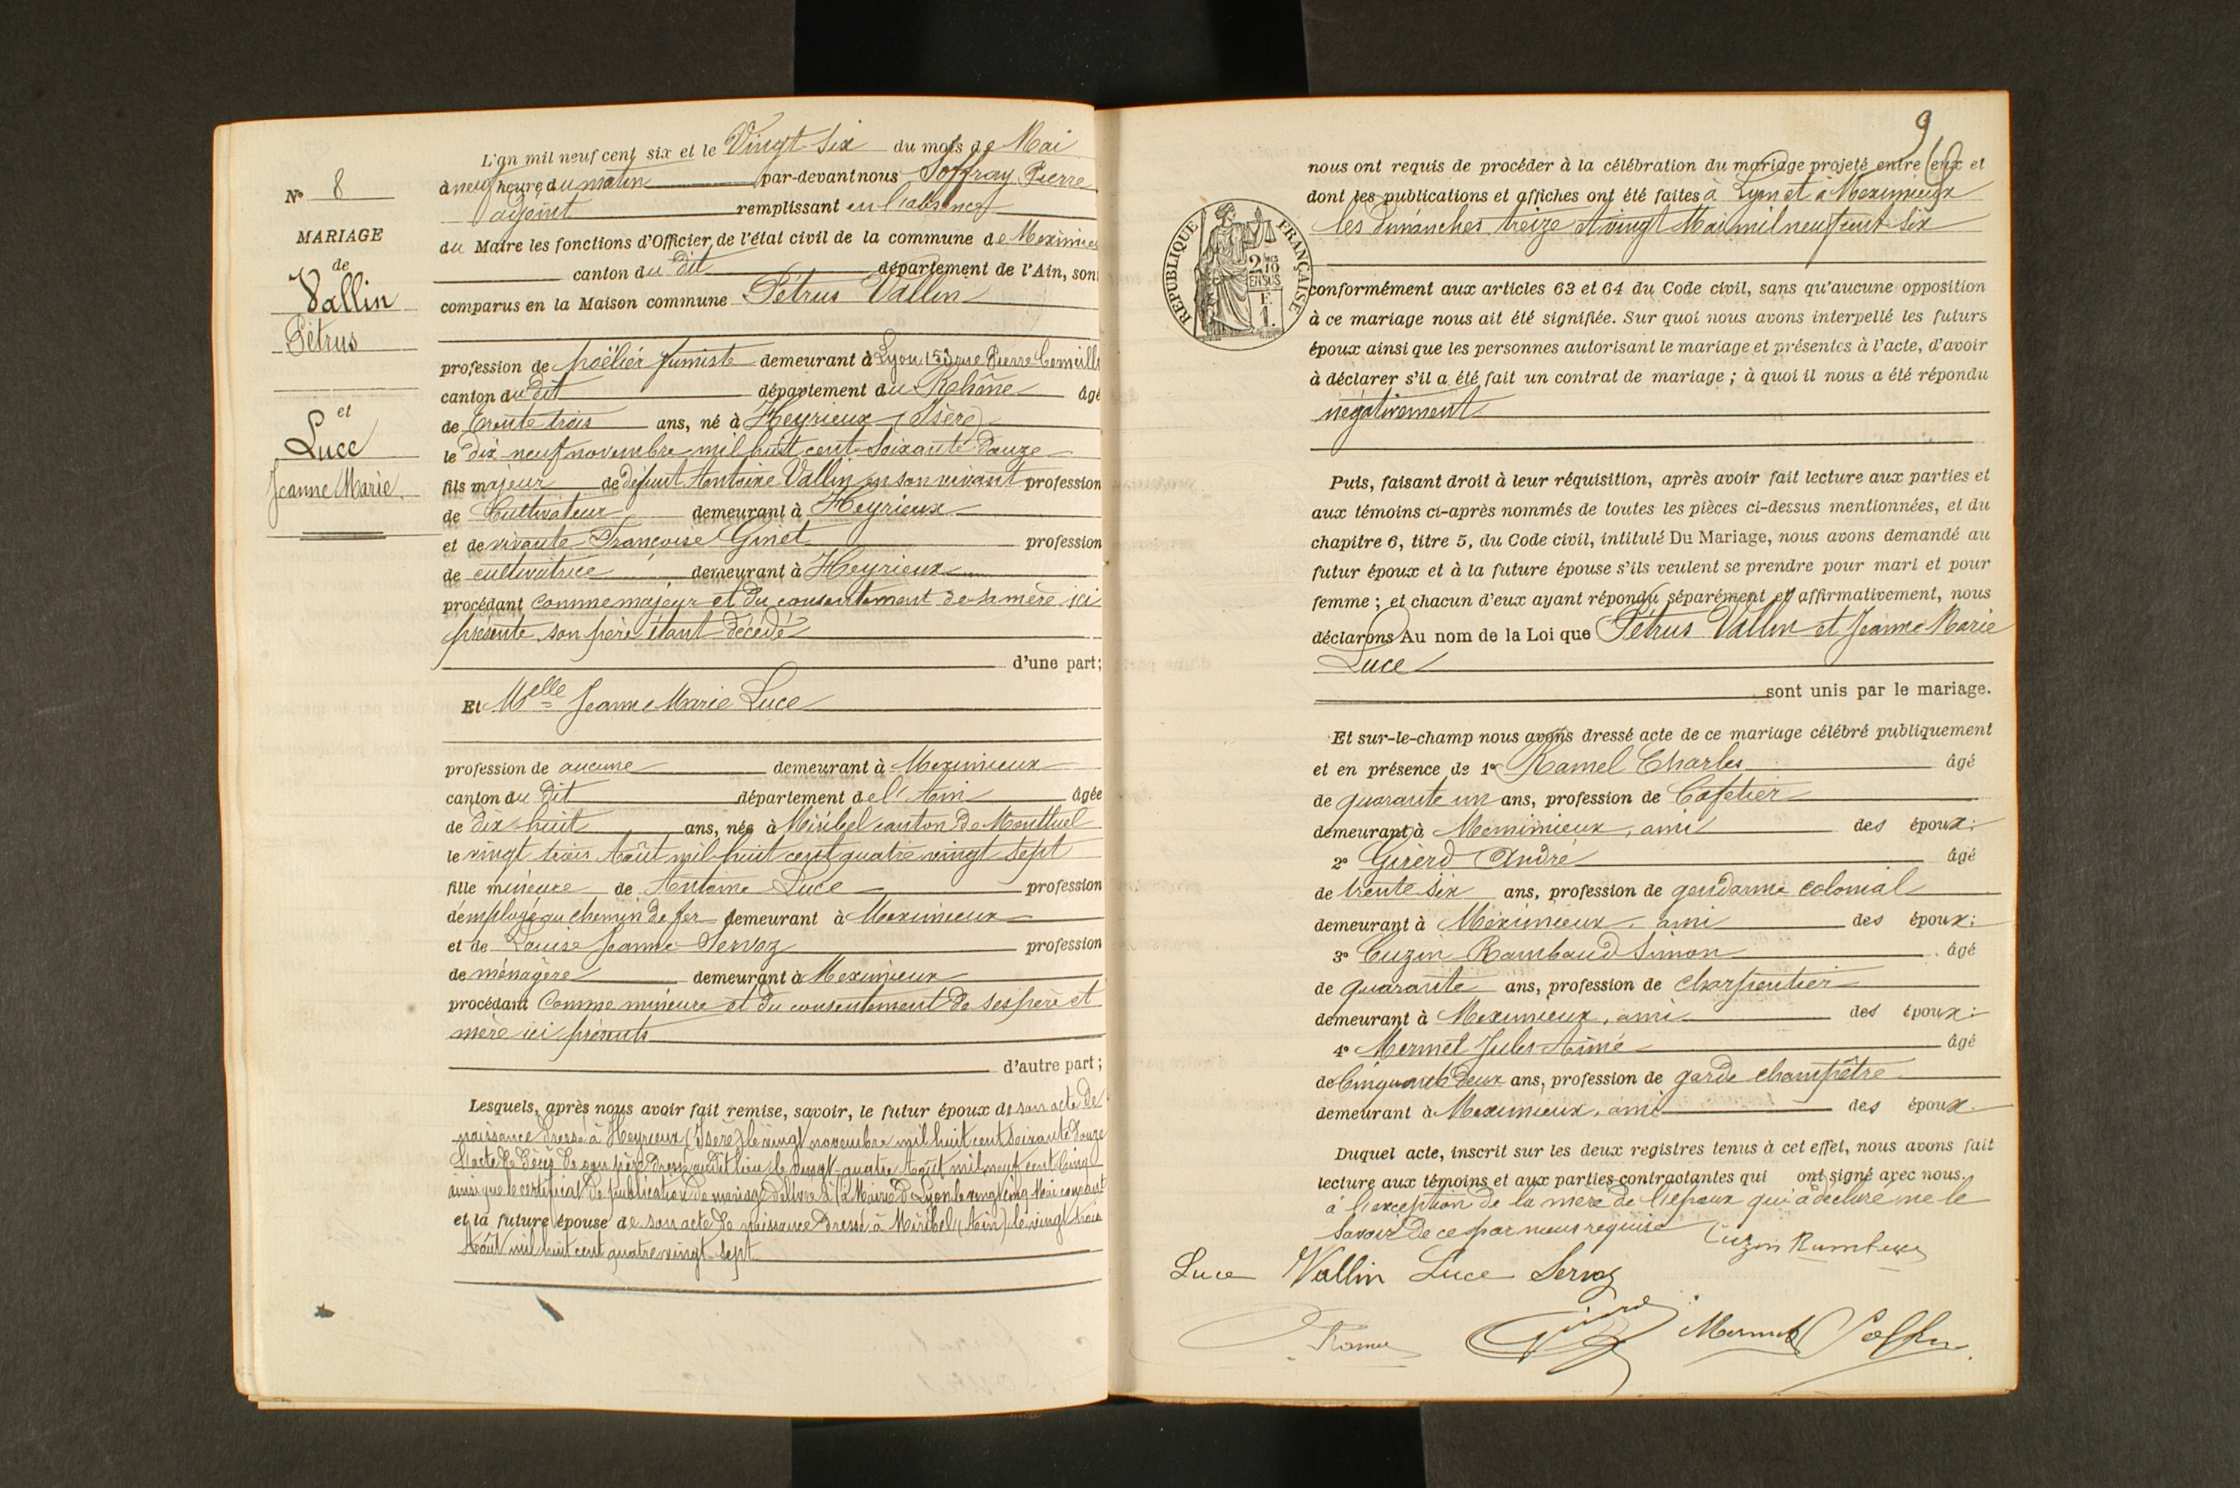 L'an mil neuf cent six et le Vingt Six du mois de Mai
N° 8
à neuf heure du matin par-devant nous Joffray Pierre
adjoint remplissant en l'absence
MARIAGE
du Maire les fonctions d'Officier de l'état civil de la commune de Meximieux
de
canton du dit département de l'Ain, sont
Vallin
comparus en la Maison commune Pétrus Vallin
Pétrus
profession de poëlier fumiste demeurant à Lyon 153 rue Pierre Corneille
canton du dit département du Rohône âgé
et
de trente trois ans, né à Heyrieux (Isère)
Luce
le dix neuf novembre mil huit cent soixante douze
Jeanne Marie
fils majeur de défunt Antoine Vallin en son vivant profession
de Cultivateur demeurant à Heyrieux
et de vivante Françoise Ginet profession
de cultivatrice demeurant à Heyrieux
procédant comme majeur et du consentement de sa mère ici
présente son père étant décédé
d'une part;
Et Melle Jeanne Marie Luce
profession de aucune demeurant à Meximieux
canton du dit département de l'Ain âgée
de dix-huit ans, née à Miribel canton de Montluel
le vingt trois Août mil huit cent quatre vingt sept
fille mineure de Antoine Luce profession
d'employé au chemin de fer demeurant à Meximieux
et de Louise Jeanne Servoz profession
de ménagère demeurant à Meximieux
procédant Comme mineure et du consentement de ses père et
mère ici présents
d'autre part;
Lesquels, après nous avoir fait remise, savoir, le futur époux de son acte de
naissance dressé à Heyrieux (Isère) le vingt novembre mil huit cent soixante douze
l'acte de décès de son père dressé audit lieu le vingt-quatre Août mil neuf cent cinq
ainsi que le certificat de publication de mariage délivré à la Mairie de Lyon le vingt cinq Mai courant
et la future épouse de son acte de naissance dressé à Miribel (Ain) le vingt trois
Août mil huit cent quatre vingt sept
9
nous ont requis de procéder à la célébration du mariage projeté entre eux et
dont les publications et affiches ont été faites à Lyon et à Meximieux
les dimanches treize et vingt Mai mil neuf cent six
RÉPUBLIQUE FRANÇAISE
2/10
EN SUS
F.
1.
conformément aux articles 63 et 64 du Code civil, sans qu'aucune opposition
à ce mariage nous ait été signifiée. Sur quoi nous avons interpellé les futurs
époux ainsi que les personnes autorisant le mariage et présentes à l'acte, d'avoir
à déclarer s'il a été fait un contrat de mariage; à quoi il nous a été répondu
négativement
Puis, faisant droit à leur réquisition, après avoir fait lecture aux parties et
aux témoins ci-après nommés de toutes les pièces ci-dessus mentionnées, et du
chapitre 6, titre 5, du Code civil, intitulé Du Mariage, nous avons demandé au
futur époux et à la future épouse s'ils veulent se prendre pour mari et pour
femme; et chacun d'eux ayant répondu séparément et affirmativement, nous
déclarons Au nom de la Loi que Pétrus Vallin et Jeanne Marie
Luce
sont unis par le mariage.
Et sur-le-champ nous avons dressé acte de ce mariage célébré publiquement
et en présence de 1° Ramel Charles âgé
de quarante un ans, profession de Cafetier
demeurant à Memimieux, ami des époux:
2° Girerd André âgé
de trente six ans, profession de gendarme colonial
demeurant à Meximieux, ami des époux:
3° Cuzin Rambaud Simon âgé
de quarante ans, profession de charpentier
demeurant à Meximieux, ami des époux:
4° Mermet Jules Aimé âgé
de Cinquante deux ans, profession de garde champêtre
demeurant à Meximieux, ami des époux.
Duquel acte, inscrit sur les deux registres tenus à cet effet, nous avons fait
lecture aux témoins et aux parties contractantes qui ont signé avec nous.
à l'exception de la mère de l'époux qui a déclaré ne le
savoir de ce par nous requise Cuzin Rambaud
Luce Vallin Luce Servoz
Ramel Girerd Mermet Joffray